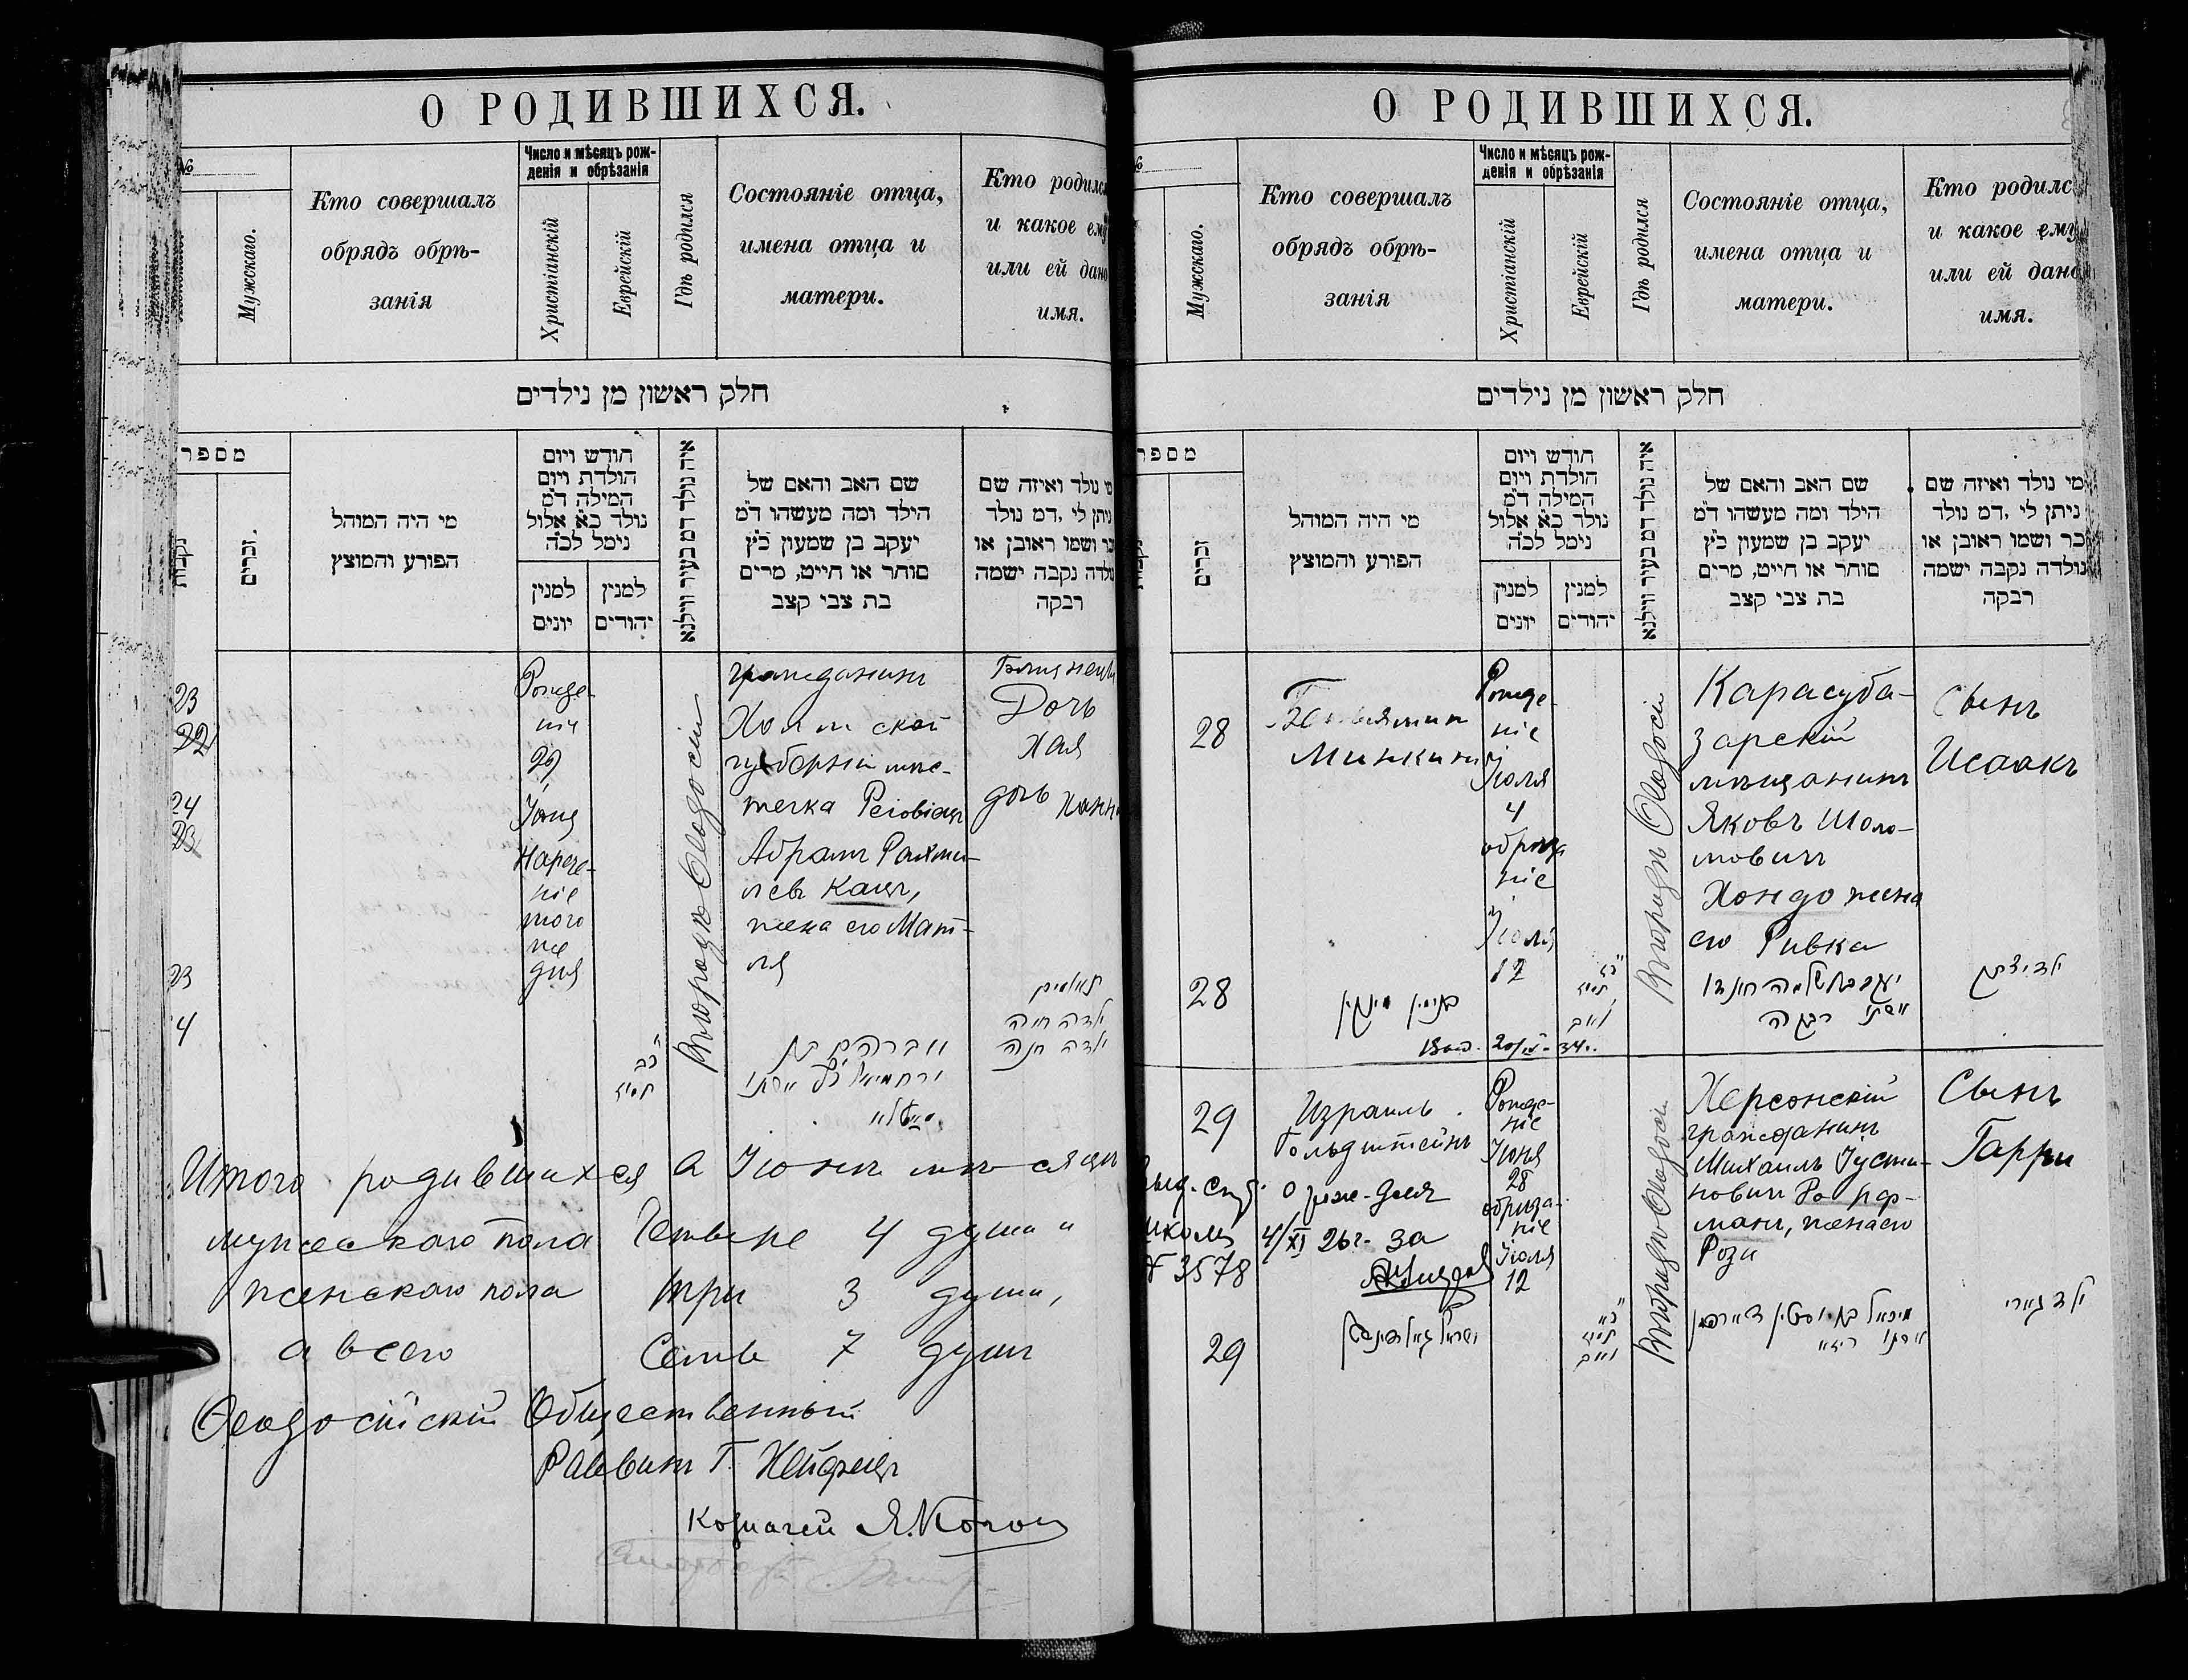 О РОДИВШИХСЯ.
№
Мужскаго.
Кто совершалъ
обрядъ обрѣ-
занія
Число и мѣсяцъ рож-
денія и обрѣзанія
Христіанскій
Еврейскій
Гдѣ родился
Состояніе отца,
имена отца и
матери.
Кто родилс
и какое ему
или ей дано
имя.
חלק ראשון מן נילדים
מספר
זכרים.
מי היה המוהל
הפורע והמוצץ
חודש ויום
הולדת ויום
המילה ד״מ
נולד כ״א אלול
נימל לכ״ה
למנין
יונים
למנין
יהודים
איה נולד דמ בעיר ווילנא
שם האב והאם של
הילד ומה מעשהו ד״מ
יעקב בן שמעון כ״ץ
סוחר או חייט, מרים
בת צבי קצב
מי נולד ואיזה שם
ניתן לי ,דמ נולד
בר ושמו ראובן או
נולדה נקבה ישמה
רבקה
23
22
24
23
Рожде-
ніе
29
Іюня
Нарече-
ніе
того
же
дня
въ городѣ Ѳеодосіи
гражданинъ
губерніи мѣс-
течка
Абрамъ Рахми-
левъ Кацъ,
жена его Мат-
ля
Дочь
Хая
дочь Ханна
23
4
כ״ב
תמוז
תאומים
ילדה חיה
ילדה חנה
Итого родившихся в Іюнѣ мѣсяцѣ
мужескаго пола Четыре 4 души "
женскаго пола три 3 души,
а всего Семь 7 душъ
Ѳеодосійскій Общественный
Раввинъ Г. Нейфельдъ
Казначей Я. Коган
О РОДИВШИХСЯ.
№
Мужскаго.
Кто совершалъ
обрядъ обрѣ-
занія
Число и мѣсяцъ рож-
денія и обрѣзанія
Христіанскій
Еврейскій
Гдѣ родился
Состояніе отца,
имена отца и
матери.
Кто родилс
и какое ему
или ей дано
имя.
חלק ראשון מן נילדים
מספר
זכרים
מי היה המוהל
הפורע והמוצץ
חודש ויום
הולדת ויום
המילה ד״מ
נולד כ״א אלול
נימל לכ״ה
למנין
יונים
למנין
יהודים
איה נולד דמ בעיר ווילנא
שם האב והאם של
הילד ומה מעשהו ד״מ
יעקב בן שמעון כ״ץ
סוחר או חייט, מרים
בת צבי קצב
מי נולד ואיזה שם
ניתן לי ,דמ נולד
בר ושמו ראובן או
נולדה נקבה ישמה
רבקה
28
Беньяминъ
Минкинъ
Рожде-
ніе
Іюля
4
обрѣза
ніе
Іюля
12
въ городѣ Ѳеодосіи
Карасуба-
зарскій
мѣщанинъ
Яковъ Шоло-
мовичъ
Хондо жена
его Ривка
Сынъ
Исаакъ
28
בנימין מינקין
תמוז
יעקב בן שלמה חונדו
אשתו רבקה
ילד יצחק
29
Израиль
Гольдштейнъ
Рожде-
ніе
Іюня
28
обрѣза-
ніе
Іюля
12
въ городѣ Ѳеодосіи
Херсонскій
гражданинъ
Михаилъ Іусти-
новичъ
манъ, жена его
Рози
Сынъ
Гарри
4/XI 26г. за
№ 3578
29
ישראל גאלדשטיין
כ״א
תמוז
ילד גארי